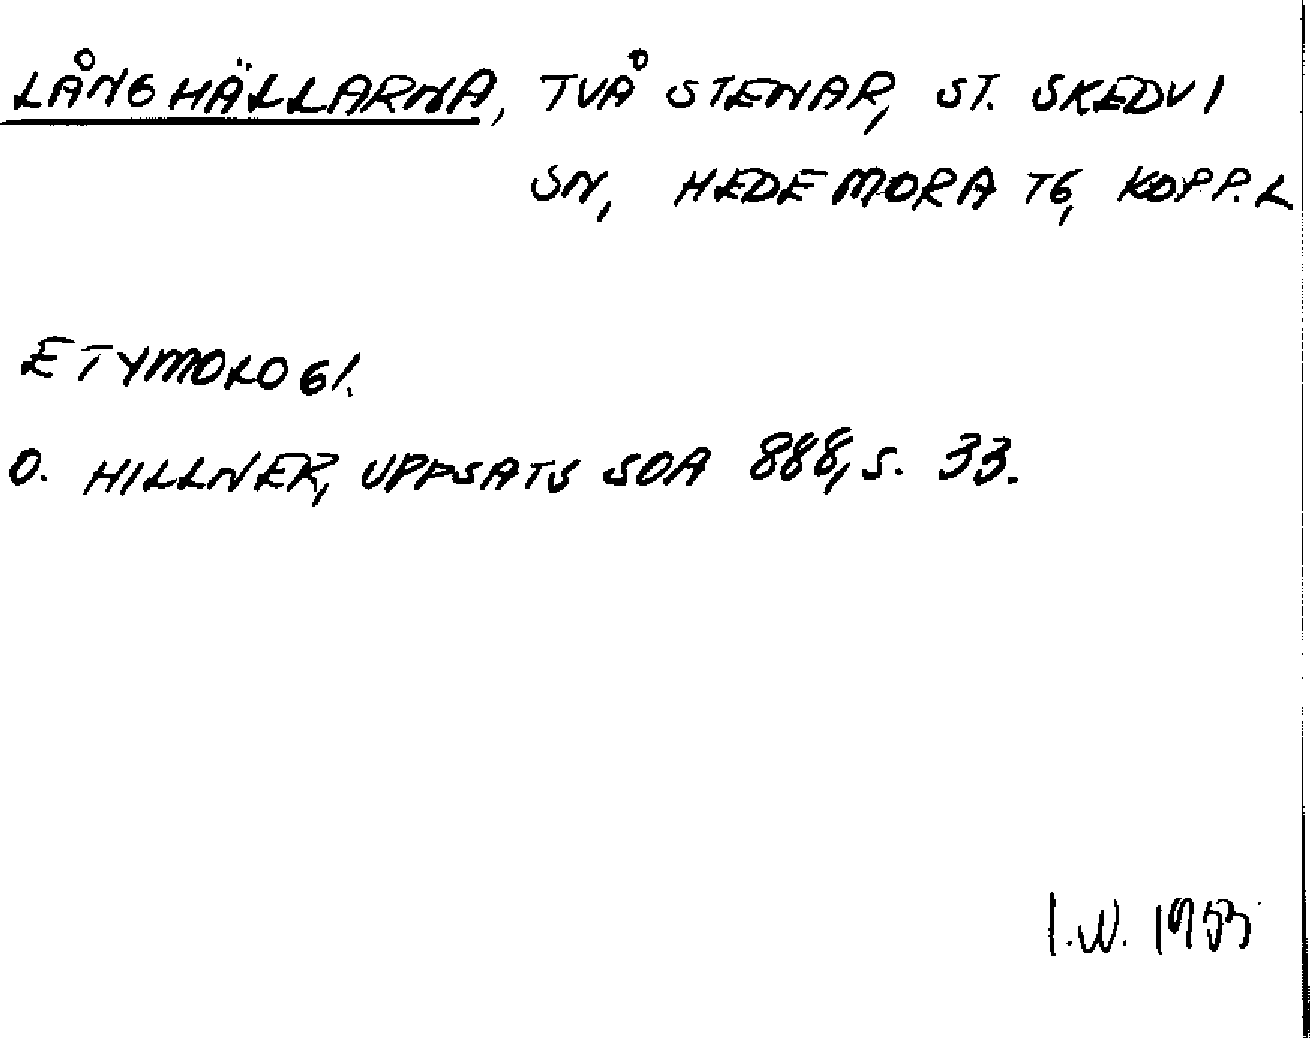 LÅNGHÄLLARNA, TVÅ STENAR, ST. SKEDVI
SN, HEDEMORA TG, KOPP. L
ETYMOLOGI.
O. HILLNER, UPPSATS SOA 888, S. 33.
I.W. 1953